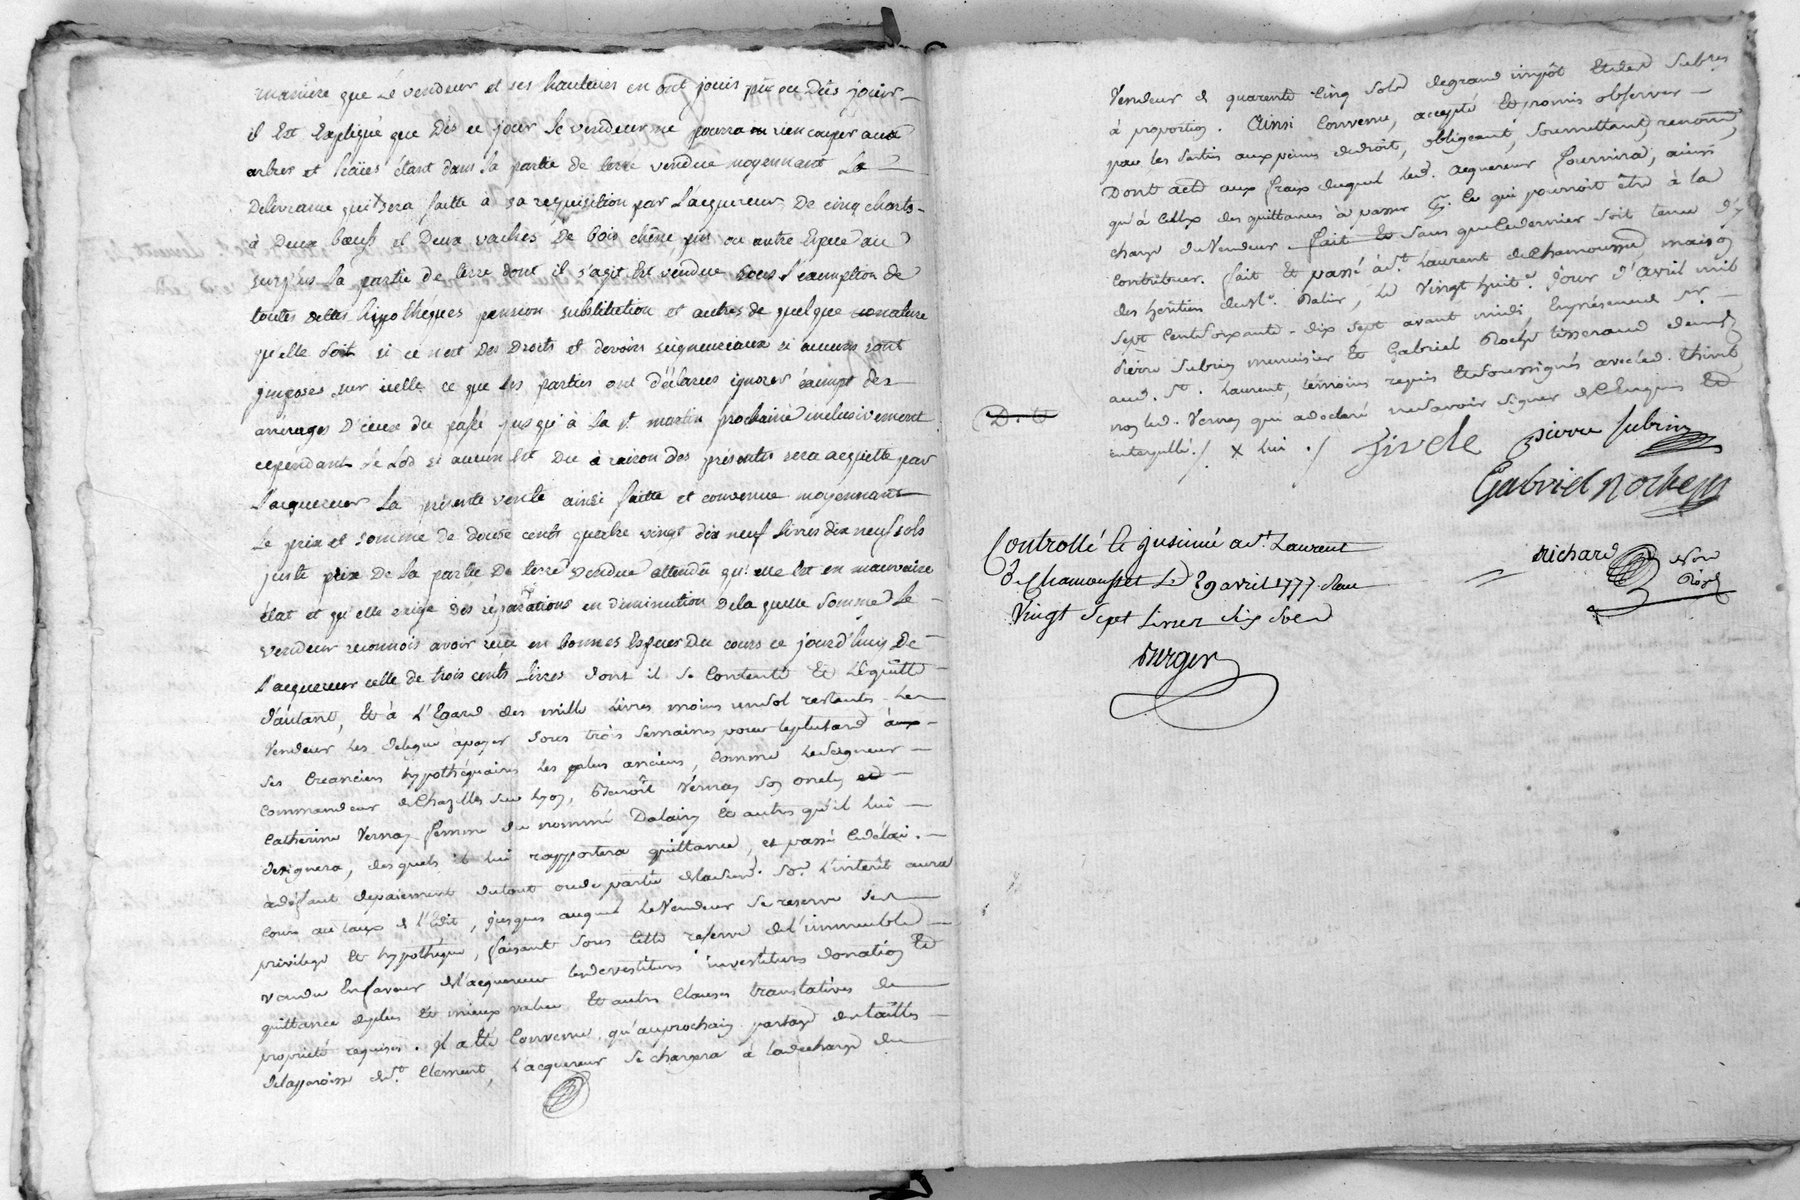 maniere que le vendeur et ses hauteurs en ont joui pû ou dûs jouir
il Est Expliqué que Dès ce jour le vendeur ne pourra ~~ou~~ rien couper aux
arbres et haiies étant dans la partie de terre vendue moyennant La
Delivrance qui x sera faitte à sa requisition par L'acquereur De cinq charts
à Deux bœufs et Deux vaches De bois chêne pin ou autre Espece au
surplus la partie de terre dont il s'agit Est vendue sous l'exemption de
toutes dettes hippothéques pension substitution et autres de quelque nature
qu'elle soit si ce n'est Des Droits et devoirs seigneuriaux si aucuns sont
imposés sur icelle ce que les parties ont déclarées ignorer exempt des
arrérages D'iceux du passé jusqu'à la St. martin prochaine inclusivement
cependant le Lod si aucun Est Du à raison des présentes sera acquitté par
L'acquereur La présente vente ainsi faitte et convenue moyennant
le prix et somme de douze cents quatre vingt dix neuf livres dix neuf sols
juste prix De la partie De terre vendue attendu qu'elle Est en mauvaise
état et qu'elle exige des réparations en diminution de la quelle somme le
vendeur reconnois avoir reçu en bonnes Espèces Du cours ce jourd'huy De
L'acquereur celle de trois cents Livres dont il se Contente Et L'Equitte
d'autant, Et à L'Egard des mille livres moins un sol restantes Le
Vendeur les delegue à payer dans trois semaines pour le plus tard aux
ses Creanciers hypothéquaires les plus anciens, Comme le Seigneur
Commandeur de Chazelles sur Lyon, Benoît Vernay son oncle ~~et~~
Catherine Vernay femme du nommé Dalairy Et autres qu'il lui
designera, desquels il lui rapportera quittance, et passé le délai
à deffaut de paiement du tout ou de partie de lad. so. L'interêt aura
cours au taux de l'Edit, jusques auquel le Vendeur se reserve ses
privilege Et hypothéque, faisant sous cette reserve de l'immeuble
vendu En faveur de l'acquereur les devestitures investitures donation Et
quittance de plus Et mieux value Et autres Clauses translatives de
propriété requises. Il a Eté Convenu, qu'au prochain partage des tailles
de la parroisse de St. Clement, L'acquereur se chargera à la decharge du
Vendeur de quarente Cinq sols de grand impôt Et des subsides
à proportion. Ainsi Convenu, accepté Et promis observer
par les Parties aux peines de droit, obligeant, soumettant, renonçant,
Dont acte aux fraix duquel led. acquereur fournira, ainsi
qu'à Celles des quittances à passer Et ce qui pourroit être à la
charge du Vendeur ~~fait Et~~ sans que ce dernier soit tenu d'y
Contribuer. fait Et passé à St. Laurent de Chamousset, maison
des heritiers du Sr. Dalin, le Vingt huit.e Jour d'avril mil
sept Cents soixante-dix sept avant midi, En présence de Sr.
Pierre Subrin menuisier Et Gabriel Roche tisserand demt.
aud. St. Laurent, témoins requis Et soussignés avec led.
non led. Vernay qui a declaré ne savoir signer de Ce Enquis Et
interpellé ./. x lui ./. Pierre Subrin
Gabriel Roche
Controllé Et insinué a St. Laurent
De Chamousset Le 29 avril 1777. Reçu
Vingt Sept Livres dix sols
Berger
Richard
Nore
Roya